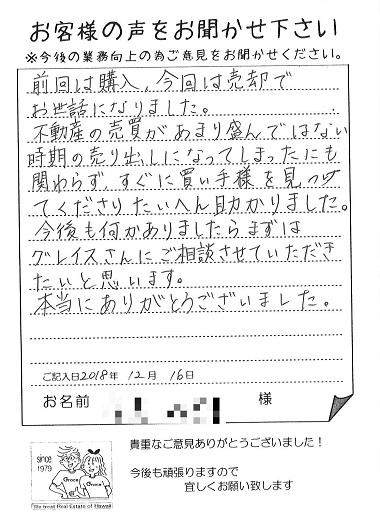 お客様の声をお聞かせ下さい
※今後の業務向上の為ご意見をお聞かせください。
前回は購入、今回は売却で
お世話になりました。
不動産の売買があまり盛んではない
時期の売り出しになってしまったにも
関わらず、すぐに買い手様を見つけ
てくださりたいへん助かりました。
今後も何かありましたらまずは
グレイスさんにご相談させていただき
たいと思います。
本当にありがとうございました。
ご記入日2018年 12月 16日
お名前 様
since
1979
貴重なご意見ありがとうございました！
今後も頑張りますので
宜しくお願い致します
Grace
Grace
We best Real Estate of Hawaii